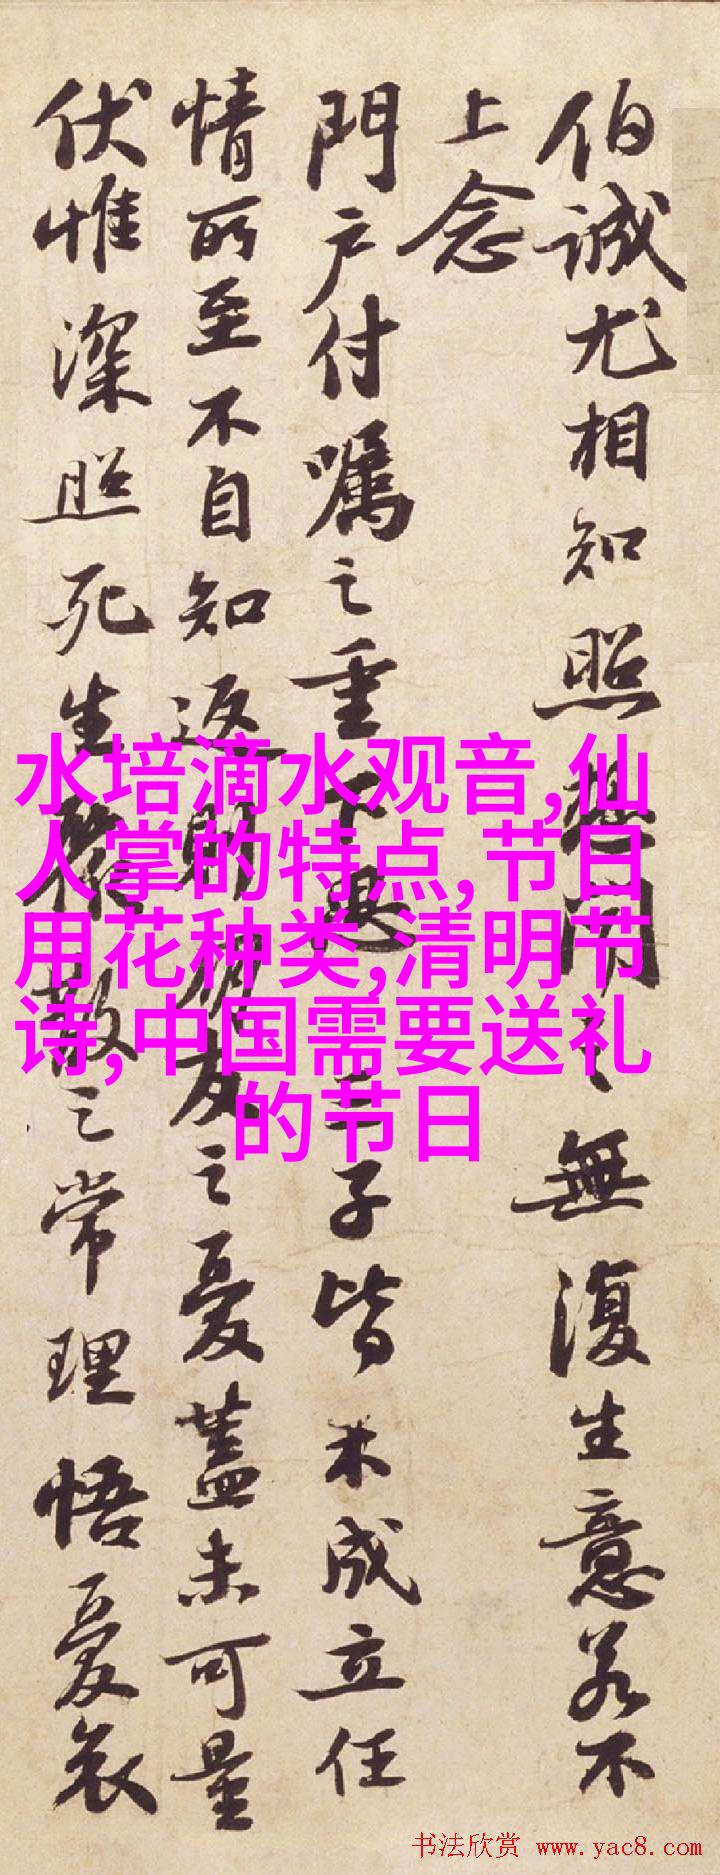 伯誠尤相知照想聞之無復生意若不
上念
門户付囑之重下思三子皆未成立任
情所至不自知返則朋友之憂蓋未可量
伏惟深照死生聚散之常理悟憂哀
水培滴水观音,仙
人掌的特点,节日
用花种类,清明节
诗,中国需要送礼
的节日
书法欣赏 www.yac8.com